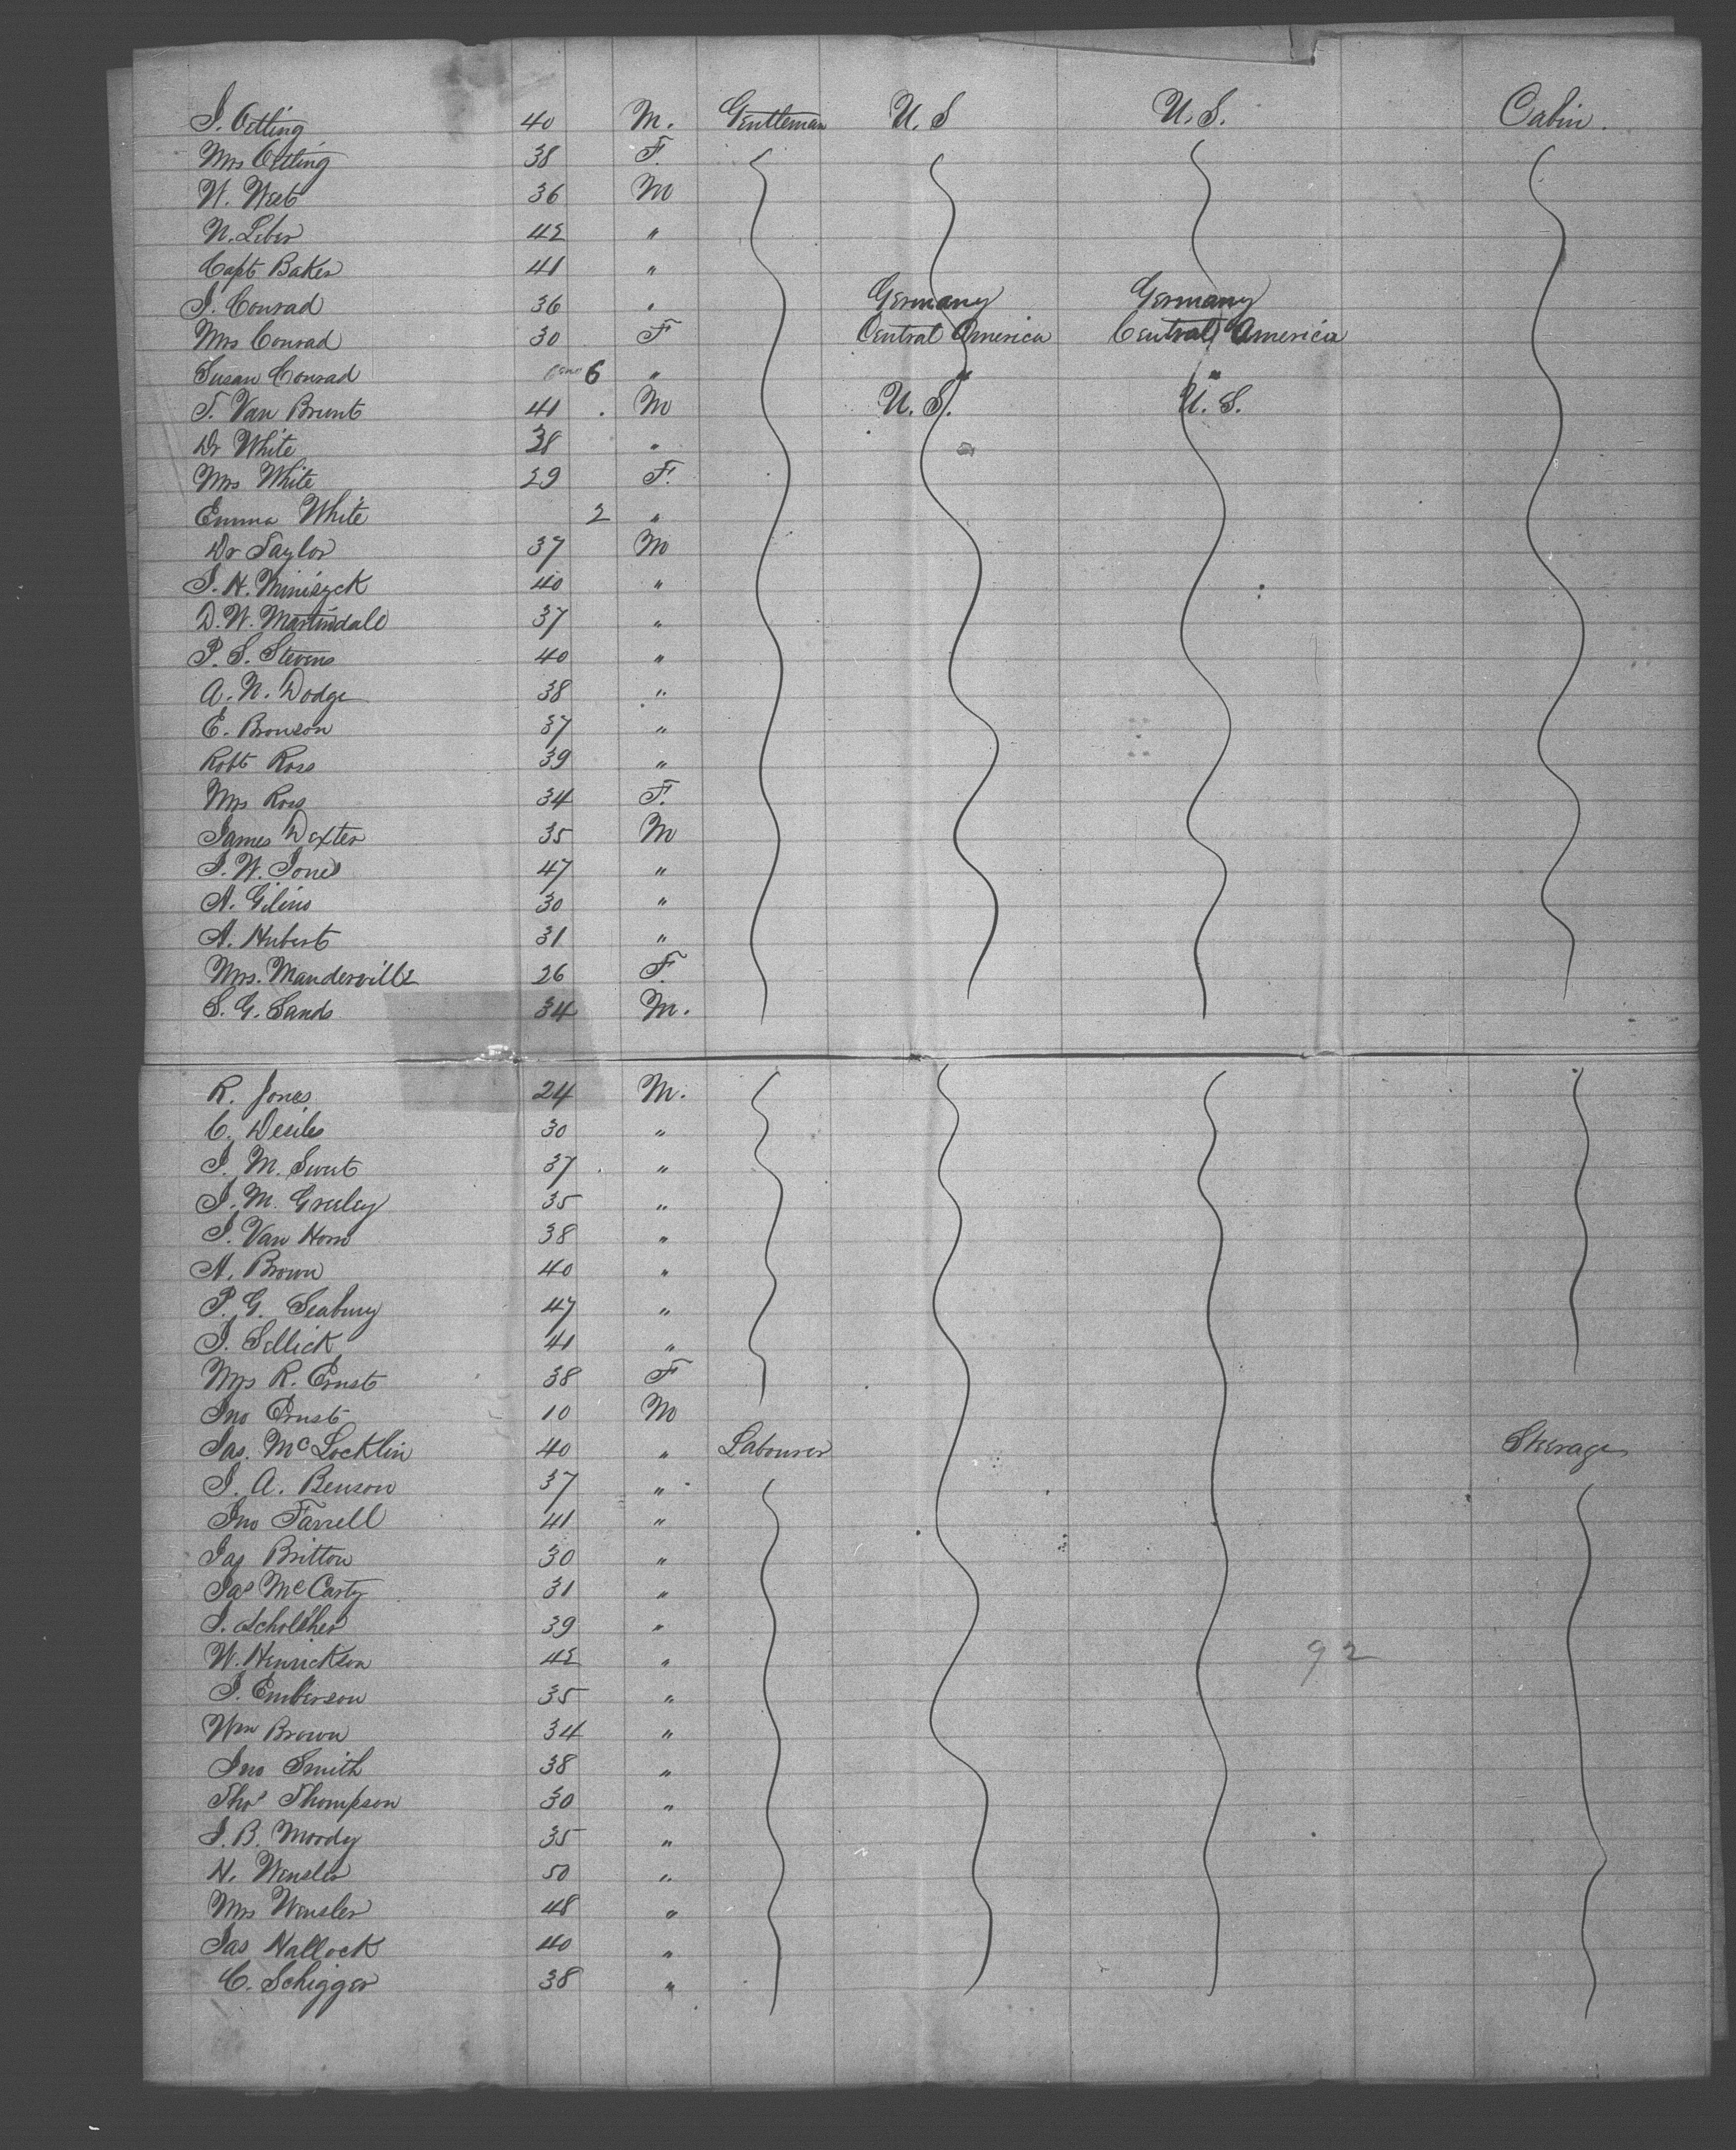 J. Oetling 40 M. Gentleman U. S U. S. Cabin.
Mrs Oetling 38 F.
W. West 36 M
N. Leber 42 "
Capt Baker 41 "
J. Conrad 36 " Germany Germany
Mrs Conrad 30 F Central America Central America
Susan Conrad 6 " " "
T. Van Brunt 41 M U. S. U. S.
Dr White 38 "
Mrs White 29 F.
Emma White 2 "
Dr Taylor 37 M
J. H. 40 "
D. W. Martindale 37 "
P. S. Stevens 40 "
A. N. Dodge 38 "
E. Bronson 37 "
Robt Ross 39 "
Mrs Ross 34 F.
James Dexter 35 M
J. W. Jones 47 "
A. 30 "
A. Hubert 31 "
Mrs. Manderville 26 F.
S. G. Sands 34 M.
R. Jones 24 M.
C. 30 "
J. M. Swet 37 "
J. M. Greeley 35 "
J. Van Horn 38 "
A. Brown 40 "
P. G. Seabury 47 "
J. Sellick 41 "
Mrs R. Ernst 38 F
Jno Ernst 10 M
Jas. McLocklin 40 " Labourer Steerage
J. A. Benson 37 "
Jno Farrell 41 "
Jas Britton 30 "
Jas McCarty 31 "
J. 39 "
W. Henrickson 42 "
92
J. Emberson 35 "
Wm Brown 34 "
Jno Smith 38 "
Thos Thompson 30 "
J. B. Moody 35 "
H. Wensler 50 "
Mrs Wensler 48 "
Jas Hallock 40 "
C. Schigger 38 "